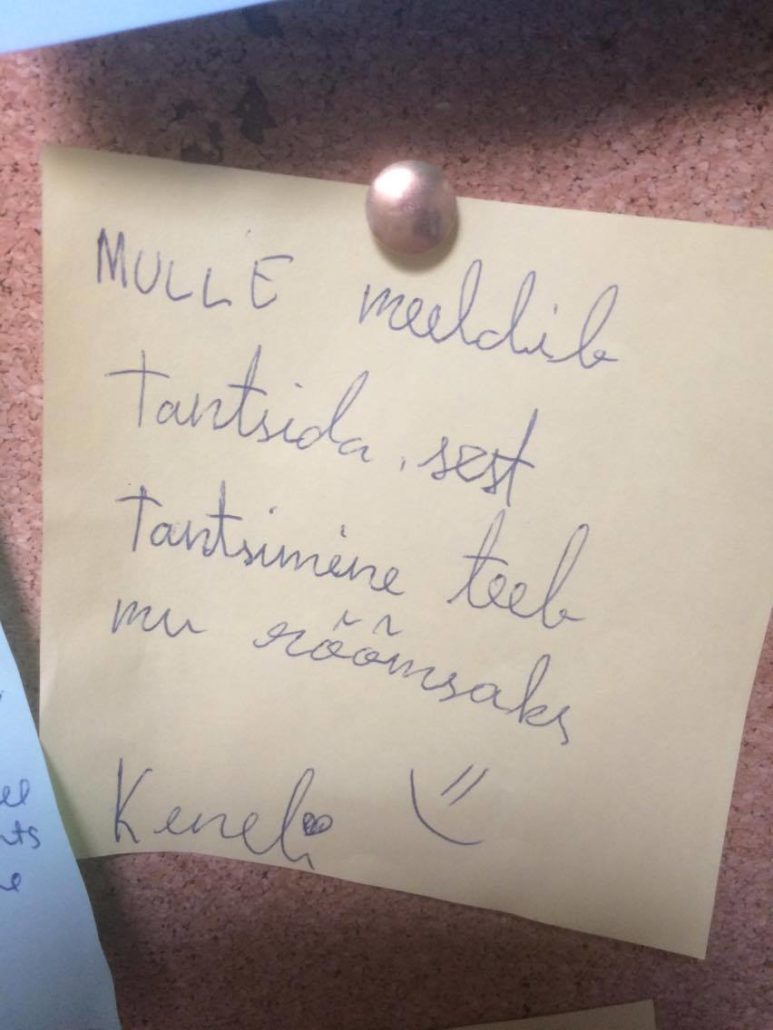 MULLE meeldib
tantsida, sest
tantsimine teeb
mu rõõmsaks
Keneli